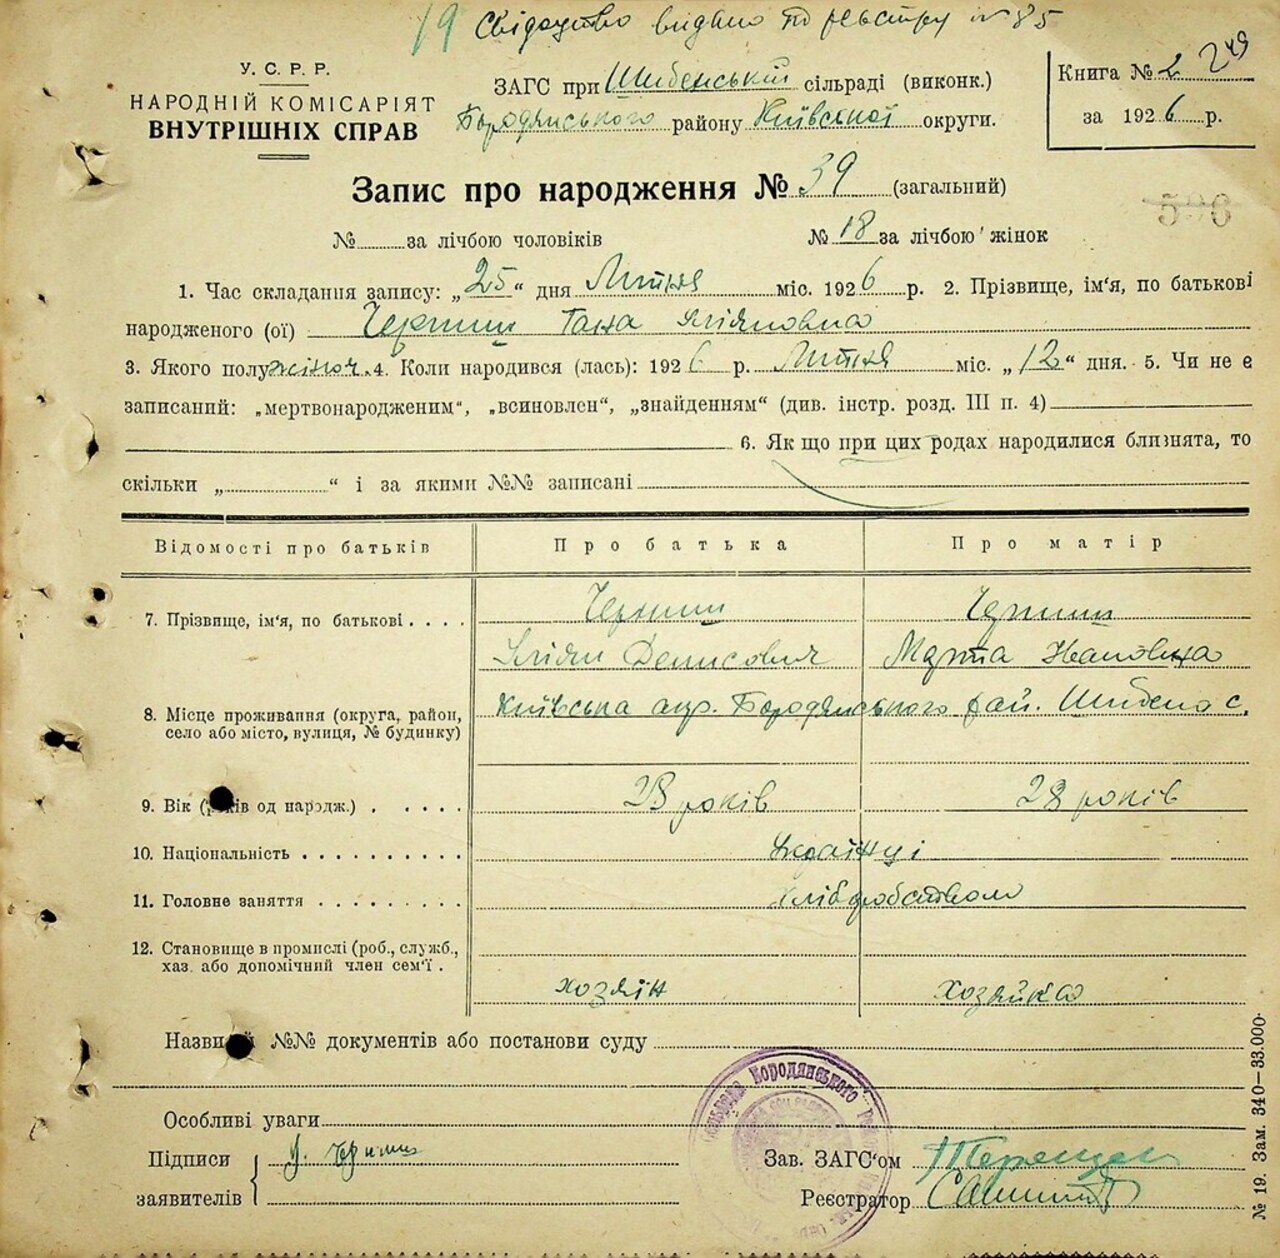 19 Свідоцтво видано по реєстру № 85
У. С. Р. Р.
НАРОДНІЙ КОМІСАРІЯТ
ВНУТРІШНІХ СПРАВ
ЗАГС при Шибенській сільраді (виконк.)
Бородянського району Київської округи.
Книга № 2 249
за 1926 р.
Запис про народження № 39 (загальний)
596
№ за лічбою чоловіків № 18 за лічбою жінок
1. Час складання запису: „25“ дня Липня міс. 1926 р. 2. Прізвище, ім'я, по батькові
народженого (ої) Черниш Гана Уліяновна
3. Якого полу жіноч. 4. Коли народився (лась): 1926 р. Липня міс. „12“ дня. 5. Чи не є
записаний: „мертвонародженим“, „всиновлен“, „знайденням“ (див. інстр. розд. III п. 4)
6. Як що при цих родах народилися близнята, то
скільки „ “ і за якими №№ записані
Відомості про батьків Про батька Про матір
7. Прізвище, ім'я, по батькові . . . . Черниш Черниш
Уліян Денисович Марта Івановна
8. Місце проживання (округа, район, Київська окр. Бородянського рай. Шибено с.
село або місто, вулиця, № будинку)
9. Вік (років од народж.) . . . . . 28 років 28 років
10. Національність . . . . . . . . . . Українці
11. Головне заняття . . . . . . . . . Хліборобством
12. Становище в промислі (роб., служб.,
хаз. або допомічний член сем'ї .
хозяїн хозяйка
Назви й №№ документів або постанови суду
Бородянського
Особливі уваги
Підписи У. Черниш Зав. ЗАГС'ом
заявителів Реєстратор
№ 19. Зам. 340—33.000